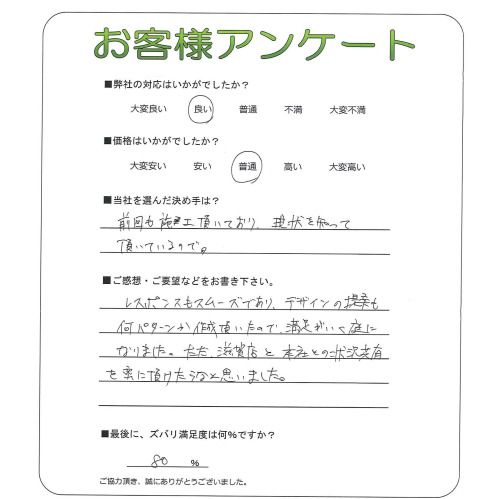 お客様アンケート
■弊社の対応はいかがでしたか？
大変良い 良い 普通 不満 大変不満
■価格はいかがでしたか？
大変安い 安い 普通 高い 大変高い
■当社を選んだ決め手は？
前回も施工頂いており、現状を知って
頂いているので。
■ご感想・ご要望などをお書き下さい。
レスポンスもスムーズであり、デザインの提案も
何パターンか作成頂いたので、満足がいく庭に
なりました。ただ、滋賀店と本社との状況共有
を密に頂けたらなと思いました。
■最後に、ズバリ満足度は何%ですか？
80 %
ご協力頂き、誠にありがとうございました。